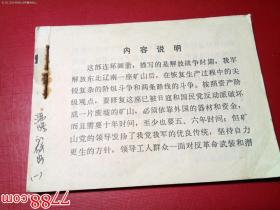 内容说明
这部连环画册，描写的是解放战争时期，我军
解放东北辽南一座矿山后，在恢复生产过程中的尖
锐复杂的阶级斗争和两条路线的斗争。按照资产阶
级观点，要修复这座已被日寇和国民党反动派破坏
成一片废墟的矿山，必须依靠外国的器材和资金，
而且需要十年时间，至少也要五、六年时间。但矿
山党的领导发扬了我党我军的优良传统，坚持自力
更生的方针，领导工人群众一面对反革命武装和潜
(一)
7788.com